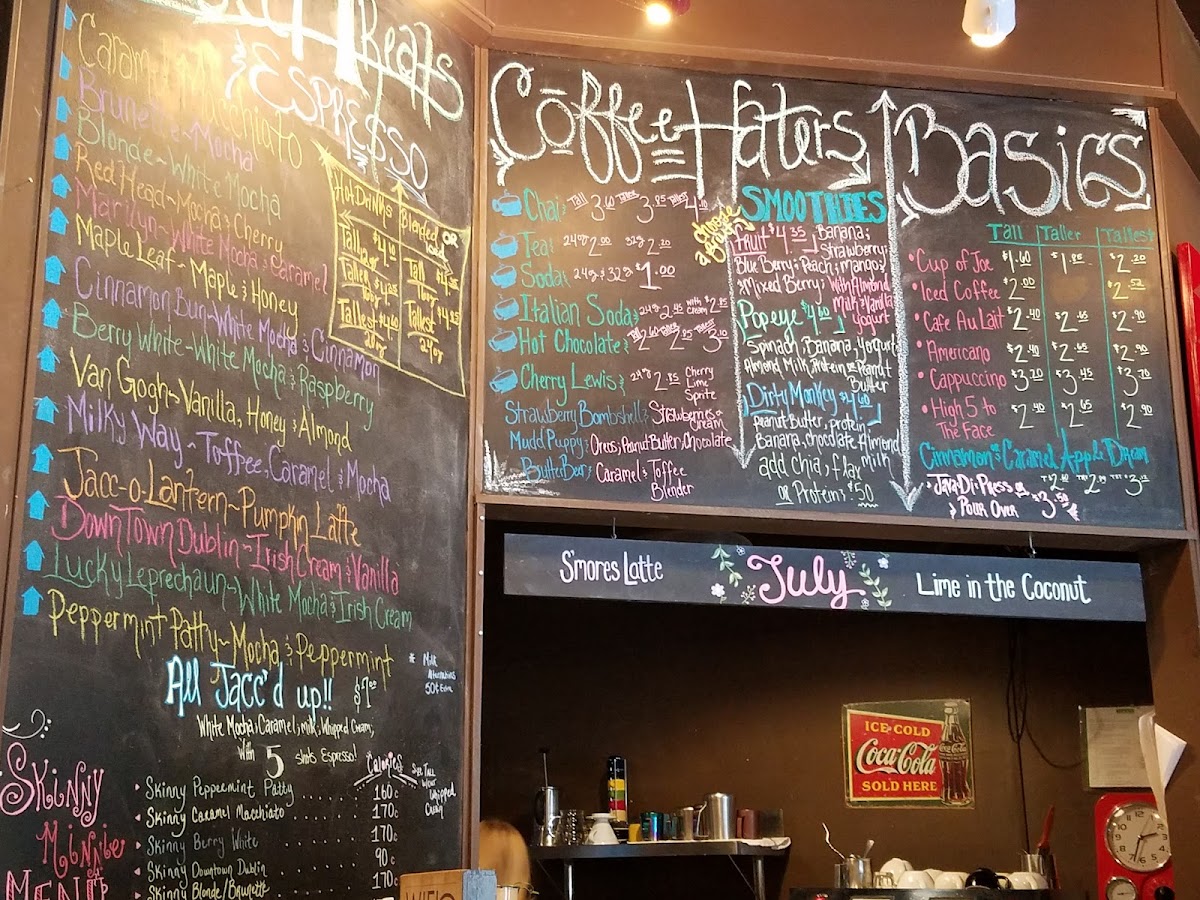 Treats
ESPRESSO
Caramel Macchiato
Brunette~Mocha
Blonde~White Mocha
Red Head~Mocha & Cherry
Marilyn~White Mocha & Caramel
Maple Leaf~Maple & Honey
Cinnamon Bun~White Mocha & Cinnamon
Berry White~White Mocha & Raspberry
Van Gogh~Vanilla, Honey & Almond
Milky Way~Toffee, Caramel & Mocha
Jacc-o-Lantern~Pumpkin Latte
DownTown Dublin~Irish Cream & Vanilla
Lucky Leprechaun~White Mocha & Irish Cream
Peppermint Patty~Mocha & Peppermint
Hot Drinks
Tall
12oz
Taller
Tallest $4.60
20oz
Blended OR
Tall
16oz
Tallest
24oz
* Milk
Alternatives
50¢ Extra
All Jacc'd up!! $7.00
White Mocha, Caramel, milk, Whipped Cream,
with 5 shots Espresso!
Skinny
Minnie
Menu
Calories
Skinny Peppermint Patty ..... 160c
Skinny Caramel Macchiato .... 170c
Skinny Berry White ..... 170c
Skinny Downtown Dublin ..... 90c
Skinny Blonde/Brunette 170c
Size Tall
w/out
Whipped
Cream
Coffee Haters
Chai Tall 3.60 Taller 3.85 Tallest 4.10
Tea 24oz 2.00 32oz 2.20
Soda 24oz & 32oz $1.00
Italian Soda 24oz 2.45 with cream $2.85
Hot Chocolate Tall 2.60 Taller 2.85 Tallest 3.10
Cherry Lewis 24oz 2.85 Cherry
Lime
Sprite
Strawberry Bombshell Strawberries &
Cream
Mudd Puppy Oreos, Peanut Butter, Chocolate
ButterBeer Caramel & Toffee
Blender
SMOOTHIES
Fruit $4.35 Banana,
Strawberry,
Blue Berry, Peach, Mango,
Mixed Berry, with Almond
Milk & Vanilla
yogurt
Popeye $4.60
Spinach, Banana, Yogurt,
Almond Milk, Protein or Peanut
Butter
Dirty Monkey $4.60
Peanut Butter, protein,
Banana, chocolate Almond
milk
add chia, flax
or Protein $.50
Basics
Tall Taller Tallest
• Cup of Joe $1.60 $2.20
• Iced Coffee $2.00
• Cafe Au Lait $2.40 $2.65 $2.90
• Americano $2.40 $2.65 $2.90
• Cappuccino $3.20 $3.45 $3.70
• High 5 to
The Face $2.40 $2.65 $2.90
Cinnamon or Caramel Apple Dream
Java-Di-Press or
Pour Over $3.50
S'mores Latte July Lime in the Coconut
ICE-COLD
Coca-Cola
SOLD HERE
WIFI